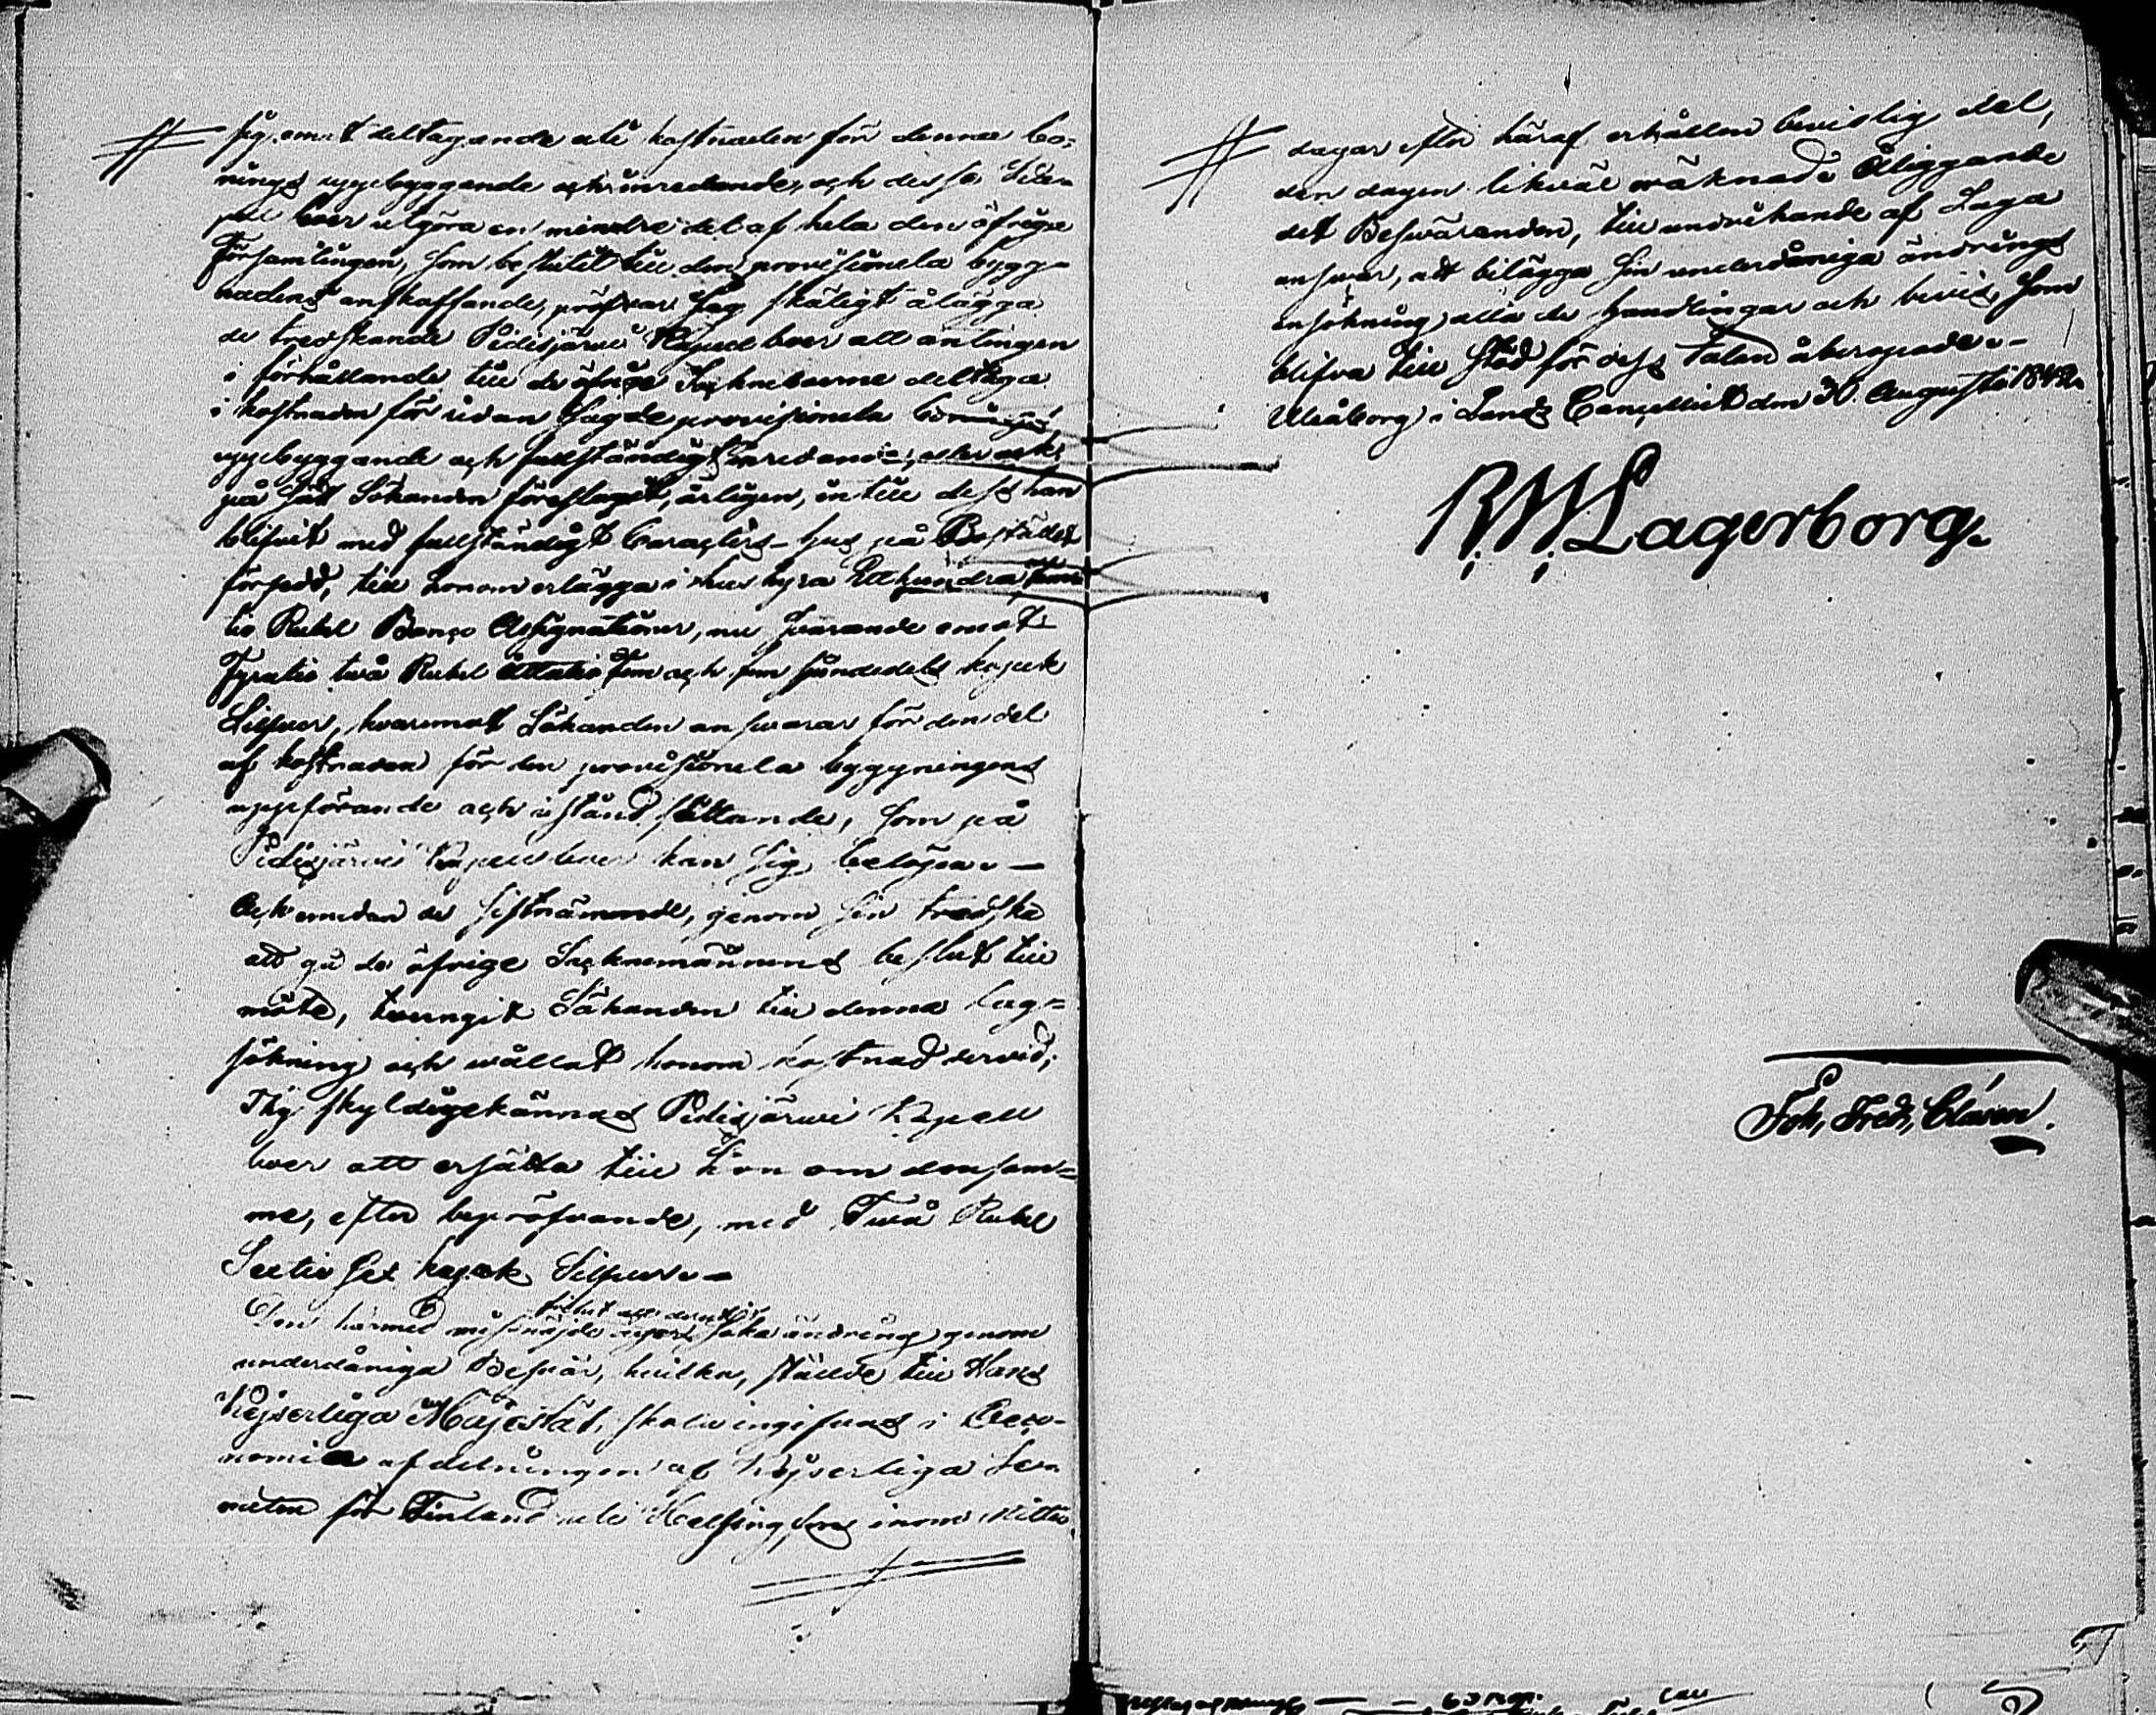 sig emot deltagande uti kostnaden för denna bo-
nings uppbyggande och inredande, och desse Sido-
 boer utgöra en mindre del af hela den öfriga
Församlingen, som beslutit till den provisionela bygg-
nadens anskaffande, pröfvar Jag skäligt ålägga
de tredskande Pidisjärvi Kapellboer att antingen
i förhållande till de öfrige Sockneboerne deltaga
i kostnaden för ofvan sagde provisionela bonings
uppbyggande och fullständigt inredande, eller ock
på sätt Sökanden föreslagit, årligen, in till dess han
blifvit med fullständigt Caracters-hus på Bostället
försedd, till honom erlägga i hus hyra Etthundra femt
tio Rubel Banco Assignationer, nu svarande emot
Fyratio två Rubel Åttatio fem och fem sjundedels kopek
Silfver, hvaremot Sökanden ansvarar för den del
af kostnaden för den provisionela byggningens
uppförande och i stånd sättande, som på
Pidisjärvi Kapellboer kan sig belöpa. —
Och emedan de sistnämnde, genom sin tredska
att gå de öfrige Socknemännens beslut till
möte, tvungit Sökanden till denna lag-
sökning och vållat honom kostnad dervid;
Thy skyldigkännas Pidisjärvi Kapell
boer att ersätta till honom densam-
me, efter bepröfvande, med Två Rubel
Sextio sex kopek Silfver. —
Den härmed missnöjde söka ändring genom
underdåniga Besvär, hvilka, stälde till Hans
Kejserliga Majestät, skola ingifvas i Eco-
nomie afdelningen af Kejserliga Se-
naten för Finland uti Helsingfors inom Nittio
dagar efter häraf erhållen bevislig del,
den dagen likväl oräknad. Åliggande
det Besväranden, till undvikande af Laga
ansvar, att bilägga sin underdåniga ändrings
ansökning alla de handlingar och bevis, som
blifva till stöd för dess talan åberopade. —
Uleåborg i Lands Cancelliet den 30 Augusti 1842.
R. W. Lagerborg.
Joh, Fredr, Clasen.